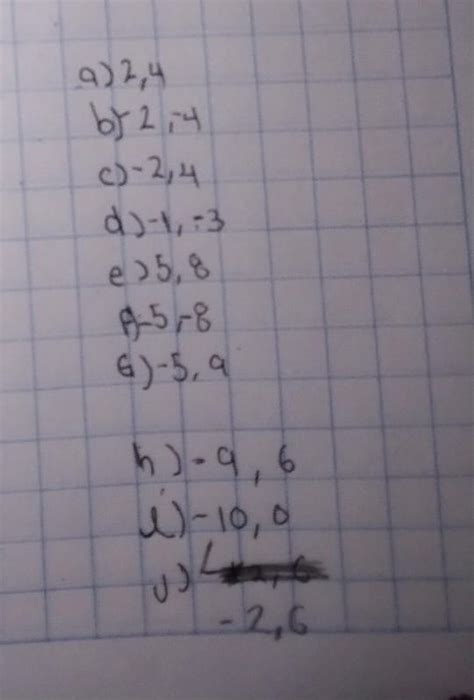 a) 2, 4
b) -2, -4
c) -2, 4
d) -1, -3
e) 5, 8
f) -5, -8
G) -5, 9
h) -9, 6
i) -10, 0
j)
-2, 6